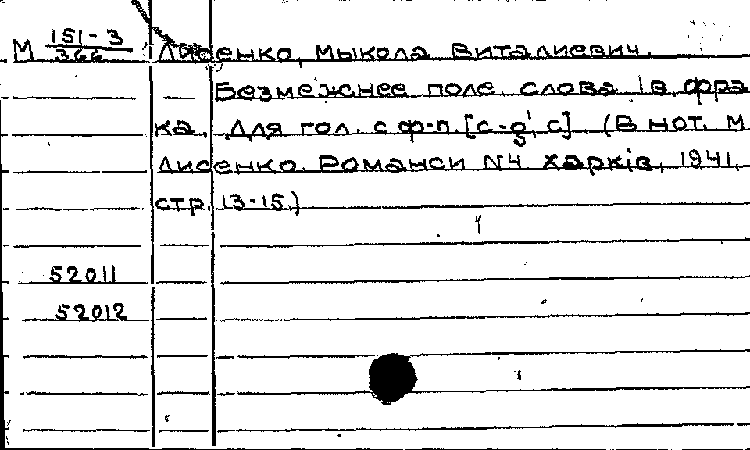 М 151-3/366 Лисенко, Мыкола Виталиевич.
Безмежнее поле. Слова І. Фра
ка. Для гол. с ф-п. [с-g', с] (В нот. М
Лисенко. Романси №4 Харків, 1941,
стр. 13-15.)
52011
52012